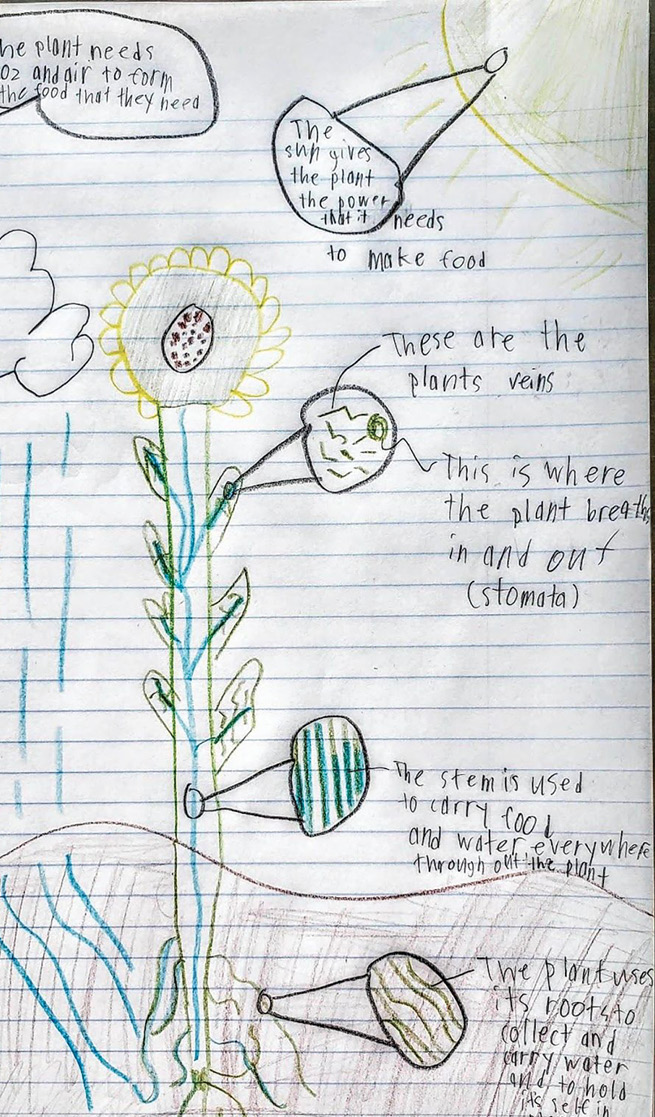 he plant needs
O2 and air to form
the food that they need
The
sun gives
the plant
the power
that it needs
to make food
These are the
plants veins
This is where
the plant breaths
in and out
(stomata)
The stem is used
to carry food
and water everywhere
through out the plant
The plant uses
its roots to
collect and
carry water
and to hold
its self in